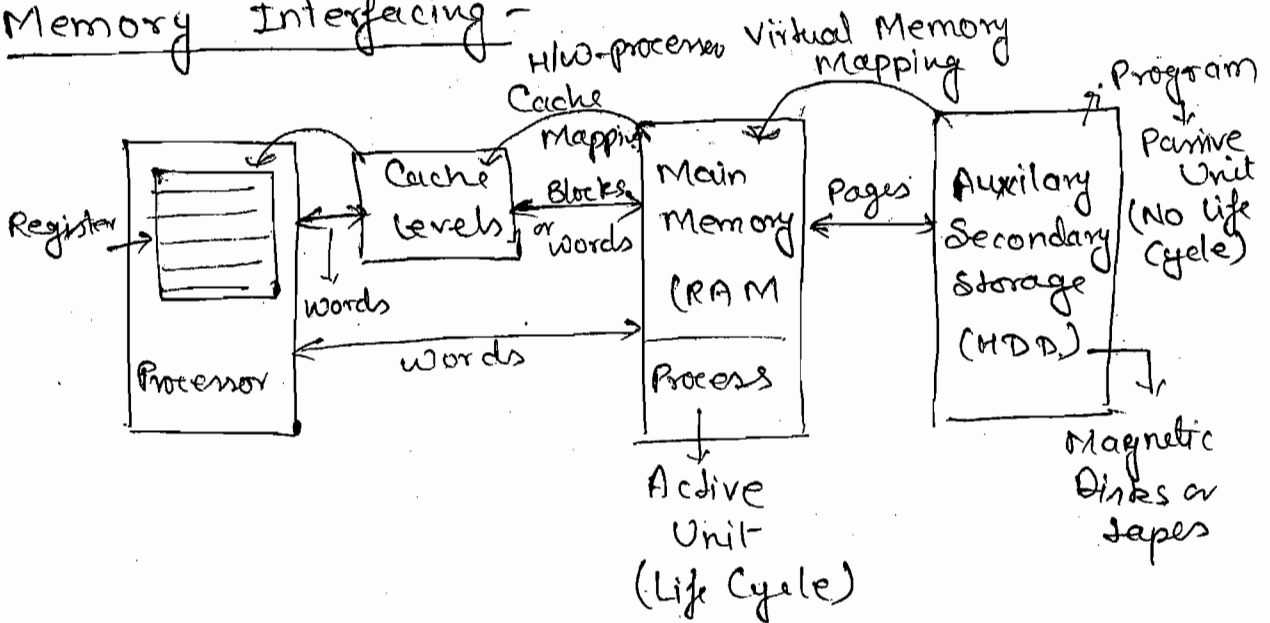 Memory Interfacing -
H/W-processes
Cache
Mapping
Virtual Memory
Mapping
Program
Passive
Unit
(No life
Cycle)
Register
Processor
words
Cache
Levels
Blocks
or
words
words
Main
Memory
(RAM
Process
Active
Unit
(Life Cycle)
Pages
Auxilary
Secondary
Storage
(HDD)
Magnetic
Disks or
Tapes